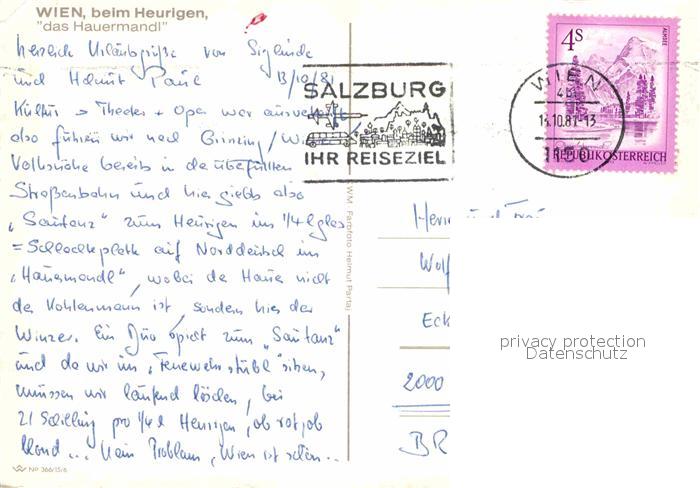 WIEN, beim Heurigen,
"das Hauermandl"
herzliche Urlaubsgrüße von Sieglinde
und Helmut Paul 13/10/81
Kultur → Theater + Oper war ausverkauft
also führen wir nach Grinzing/Wien
Volksnähe bereits in der überfüllten
Straßenbahn und hier giebts also
"Sautanz" zum Heurigen im 1/4 l glas
= Schlachteplatte auf Norddeutsch im
"Hauermandl", wobei der Hauer nicht
der Kohlenmann ist, sondern hier der
Winzer. Ein Duo spielt zum "Sautanz"
und da wir im "Feuerwehrstübl" sitzen,
müssen wir laufend löschen, bei
21 Schilling pro 1/4 l Heurigen, ob rot, ob
blond ... Kein Problem, Wien ist schön...
NP 366/15/6
WM Farbfoto Helmut Partaj
SALZBURG
IHR REISEZIEL
WIEN
13.10.81-13
1150
4S
ALMSEE
REPUBLIK ÖSTERREICH
Herrn und Frau
Wolf
Eck
2000
BR
privacy protection
Datenschutz